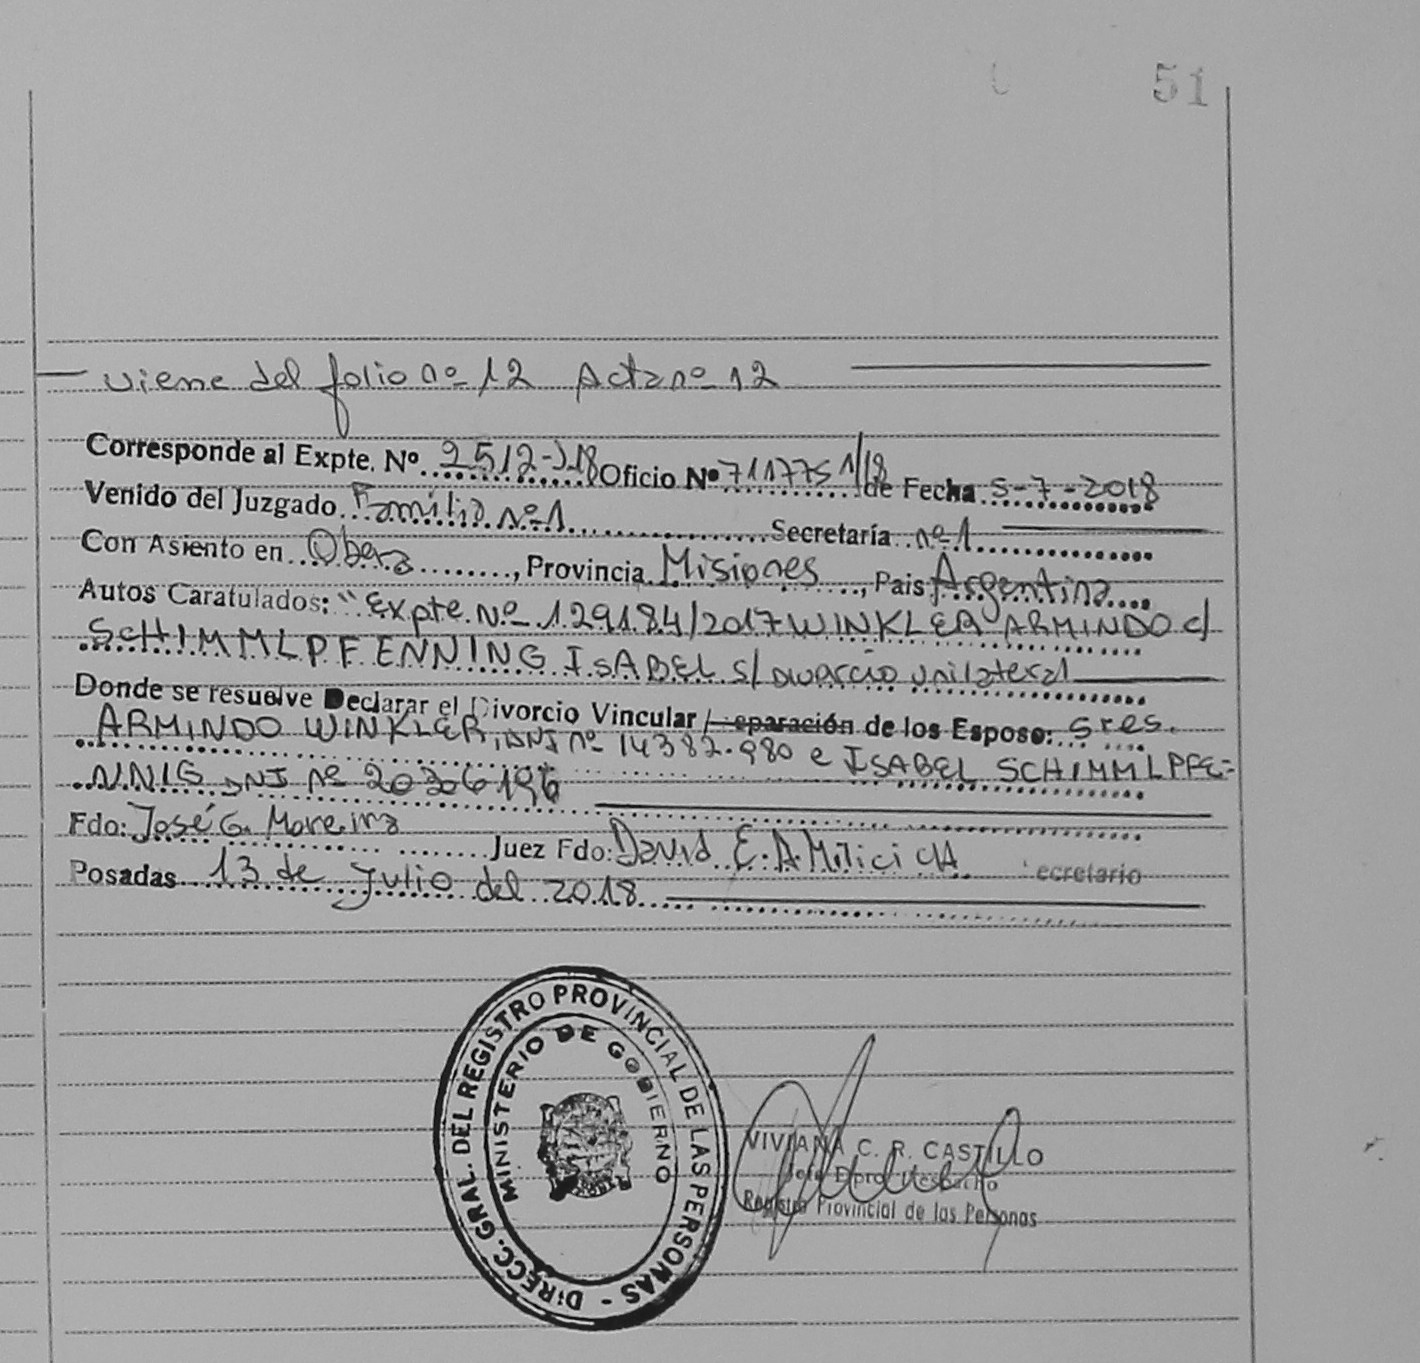 51
viene del folio nº 12 Acta nº 12
Corresponde al Expte. Nº 2512-J-18 Oficio Nº 711775 1/18 de Fecha 5-7-2018
Venido del Juzgado Familia nº 1 Secretaría nº 1
Con Asiento en Obera, Provincia Misiones, Pais Argentina
Autos Caratulados: "Expte. Nº 129184/2017 WINKLER ARMINDO c/
SCHIMMLPFENNING ISABEL s/ divorcio unilateral
Donde se resuelve Declarar el Divorcio Vincular / eparación de los Esposo: Sres.
ARMINDO WINKLER, DNI nº 14382.980 e ISABEL SCHIMMLPFE=
NNIG DNI nº 20306196
Fdo: José G. Moreira Juez Fdo: David E. A Milicich ecretario
Posadas 13 de Julio del 2018
DIRECC. GRAL. DEL REGISTRO PROVINCIAL DE LAS PERSONAS -
MINISTERIO DE GOBIERNO
VIVIANA C. R. CASTILLO
Jefe Dpto. Despacho
Registro Provincial de las Personas